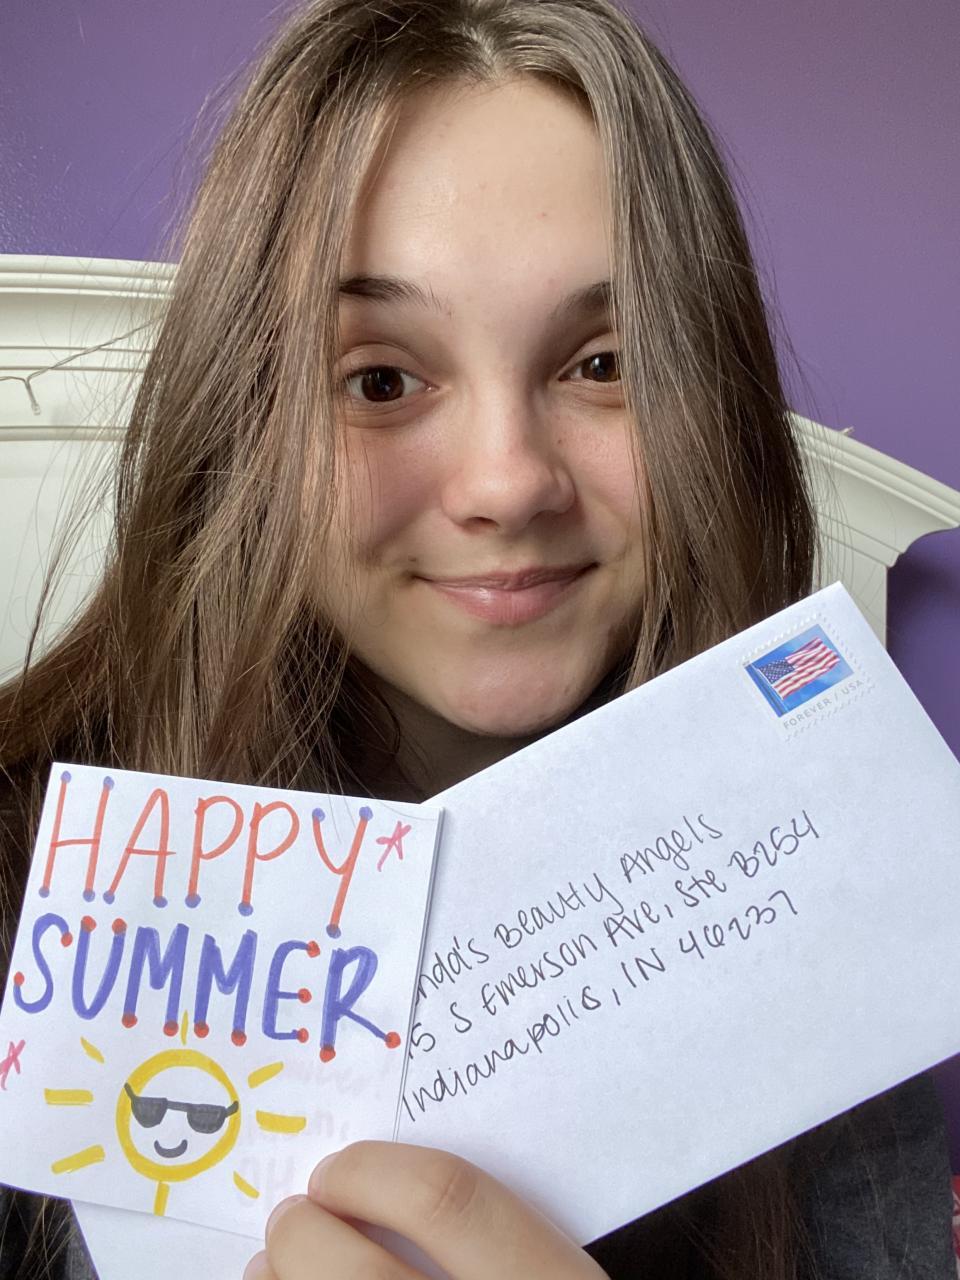 HAPPY
SUMMER
FOREVER / USA
nda's Beauty Angels
15 S Emerson Ave, Ste B254
Indianapolis, IN 46237